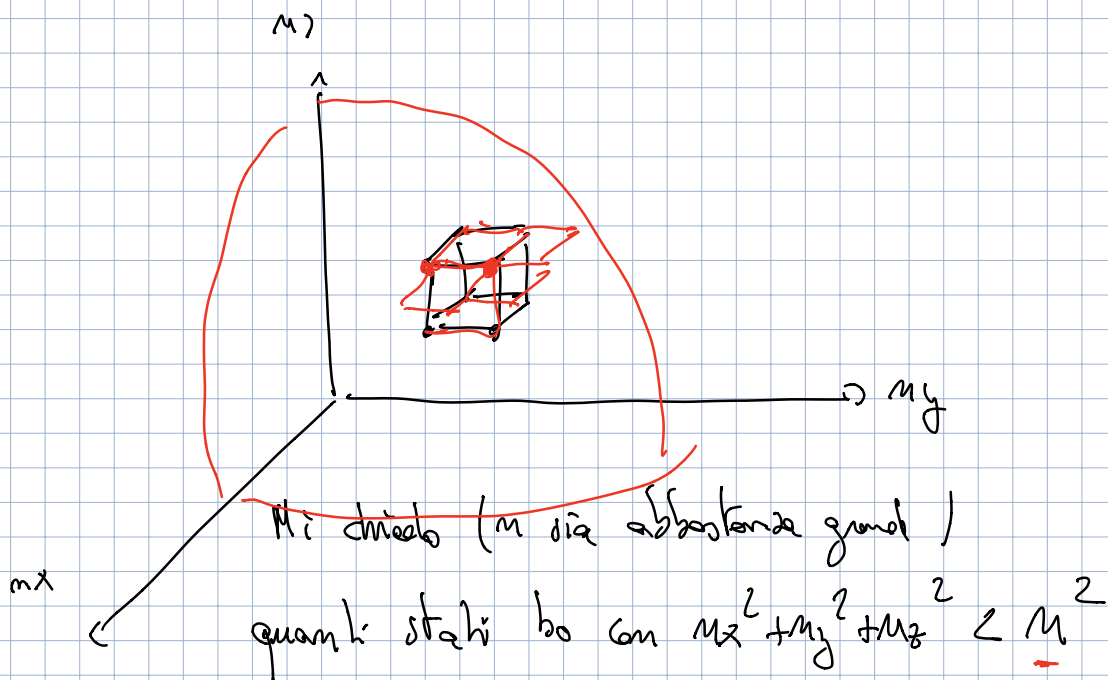 nz
ny
Mi chiedo (n sia abbastanza grande)
nx
quanti stati ho con nx² + ny² + nz² < n²